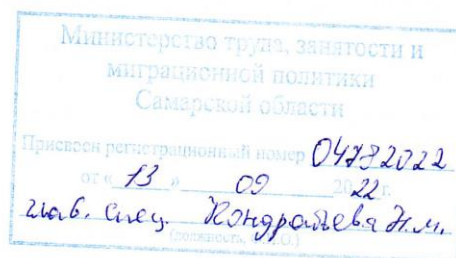 Министерство труда, занятости и
миграционной политики
Самарской области
Присвоен регистрационный номер
от « 13 » 09 2022 г.
глав. спец. Кондратьева Н.М.
(должность, Ф.И.О.)